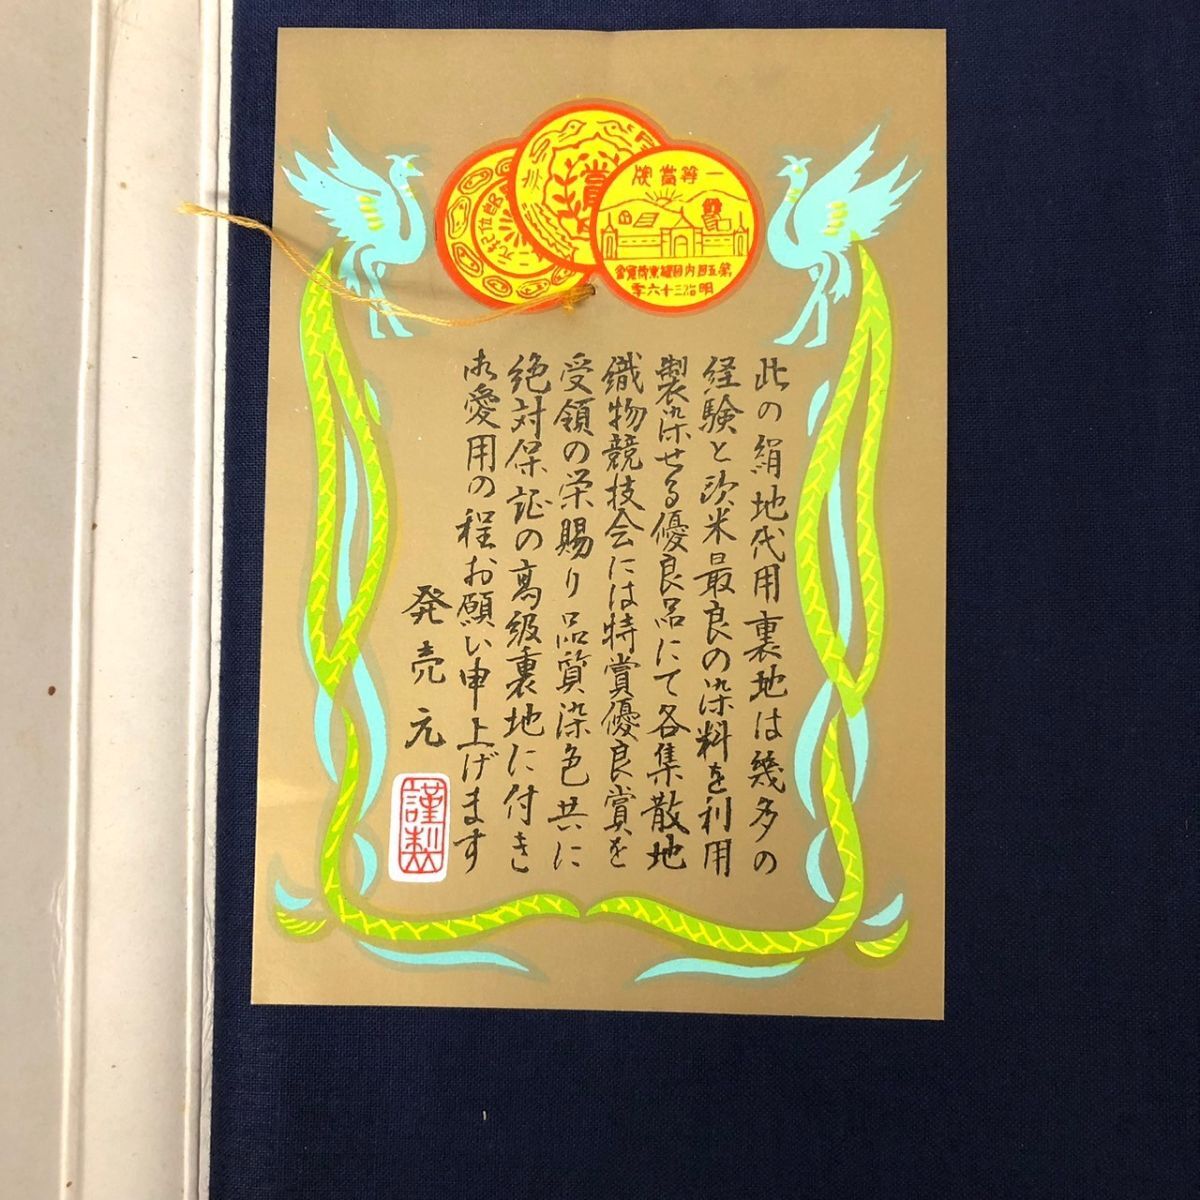 一等賞牌
明治三十六年
賞
此の絹地代用裏地は幾多の
経験と欧米最良の染料を利用
製染せる優良品にて各集散地
織物競技会には特賞優良賞を
受領の栄賜り品質染色共に
絶対保証の高級裏地に付き
御愛用の程お願い申上げます
発売元
謹製